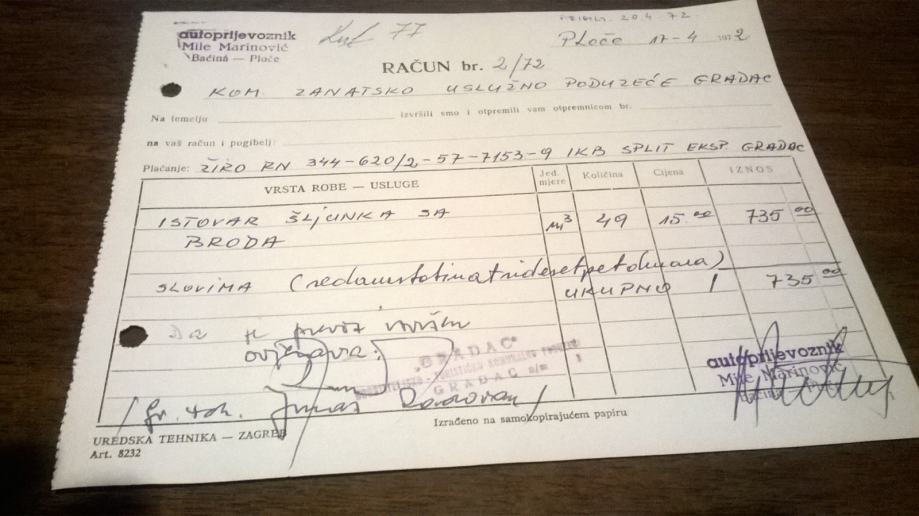 PRIMLJ. 20.4.72
autoprijevoznik
Mile Marinović
Baćina — Ploče
77
Ploče 17-4 1972
RAČUN br. 2/72
KOM. ZANATSKO USLUŽNO PODUZEĆE GRADAC
Na temelju izvršili smo i otpremili vam otpremnicom br.
na vaš račun i pogibelj:
Plaćanje: ŽIRO RN 344-620/2-57-7153-9 IKB SPLIT EKSP. GRADAC
VRSTA ROBE — USLUGE Jed. mjere Količina Cijena IZNOS
ISTOVAR ŠLJUNKA SA m³ 49 15.00 735 00
BRODA
SLOVIMA (sedamstotinatridesetpetdinara)
UKUPNO 735 00
Da je prevoz izvršen
ovjerava:
"GRADAC"
GRADAC
autoprijevoznik
Mile Marinović
Baćina
/ Gr. teh.
UREDSKA TEHNIKA — ZAGREB
Art. 8232
Izrađeno na samokopirajućem papiru